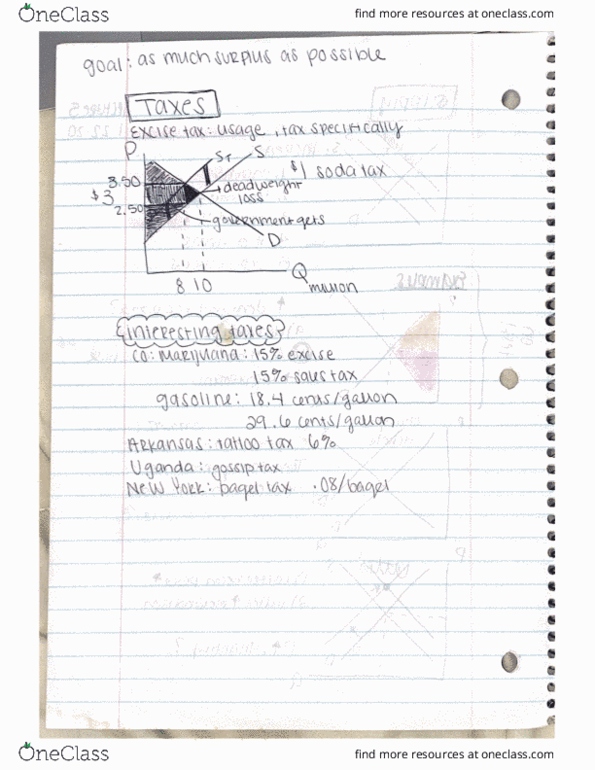 OneClass
find more resources at oneclass.com
goal: as much surplus as possible
Taxes
Excise tax: usage, tax specifically
P
ST S
$1 soda tax
3.50
$3
2.50
deadweight
loss
government gets
D
Q
million
8 10
interesting taxes
CO: Marijuana: 15% excise
15% sales tax
gasoline: 18.4 cents/gallon
29.6 cents/gallon
Arkansas: tattoo tax 6%
Uganda: gossip tax
New York: bagel tax .08/bagel
OneClass
find more resources at oneclass.com